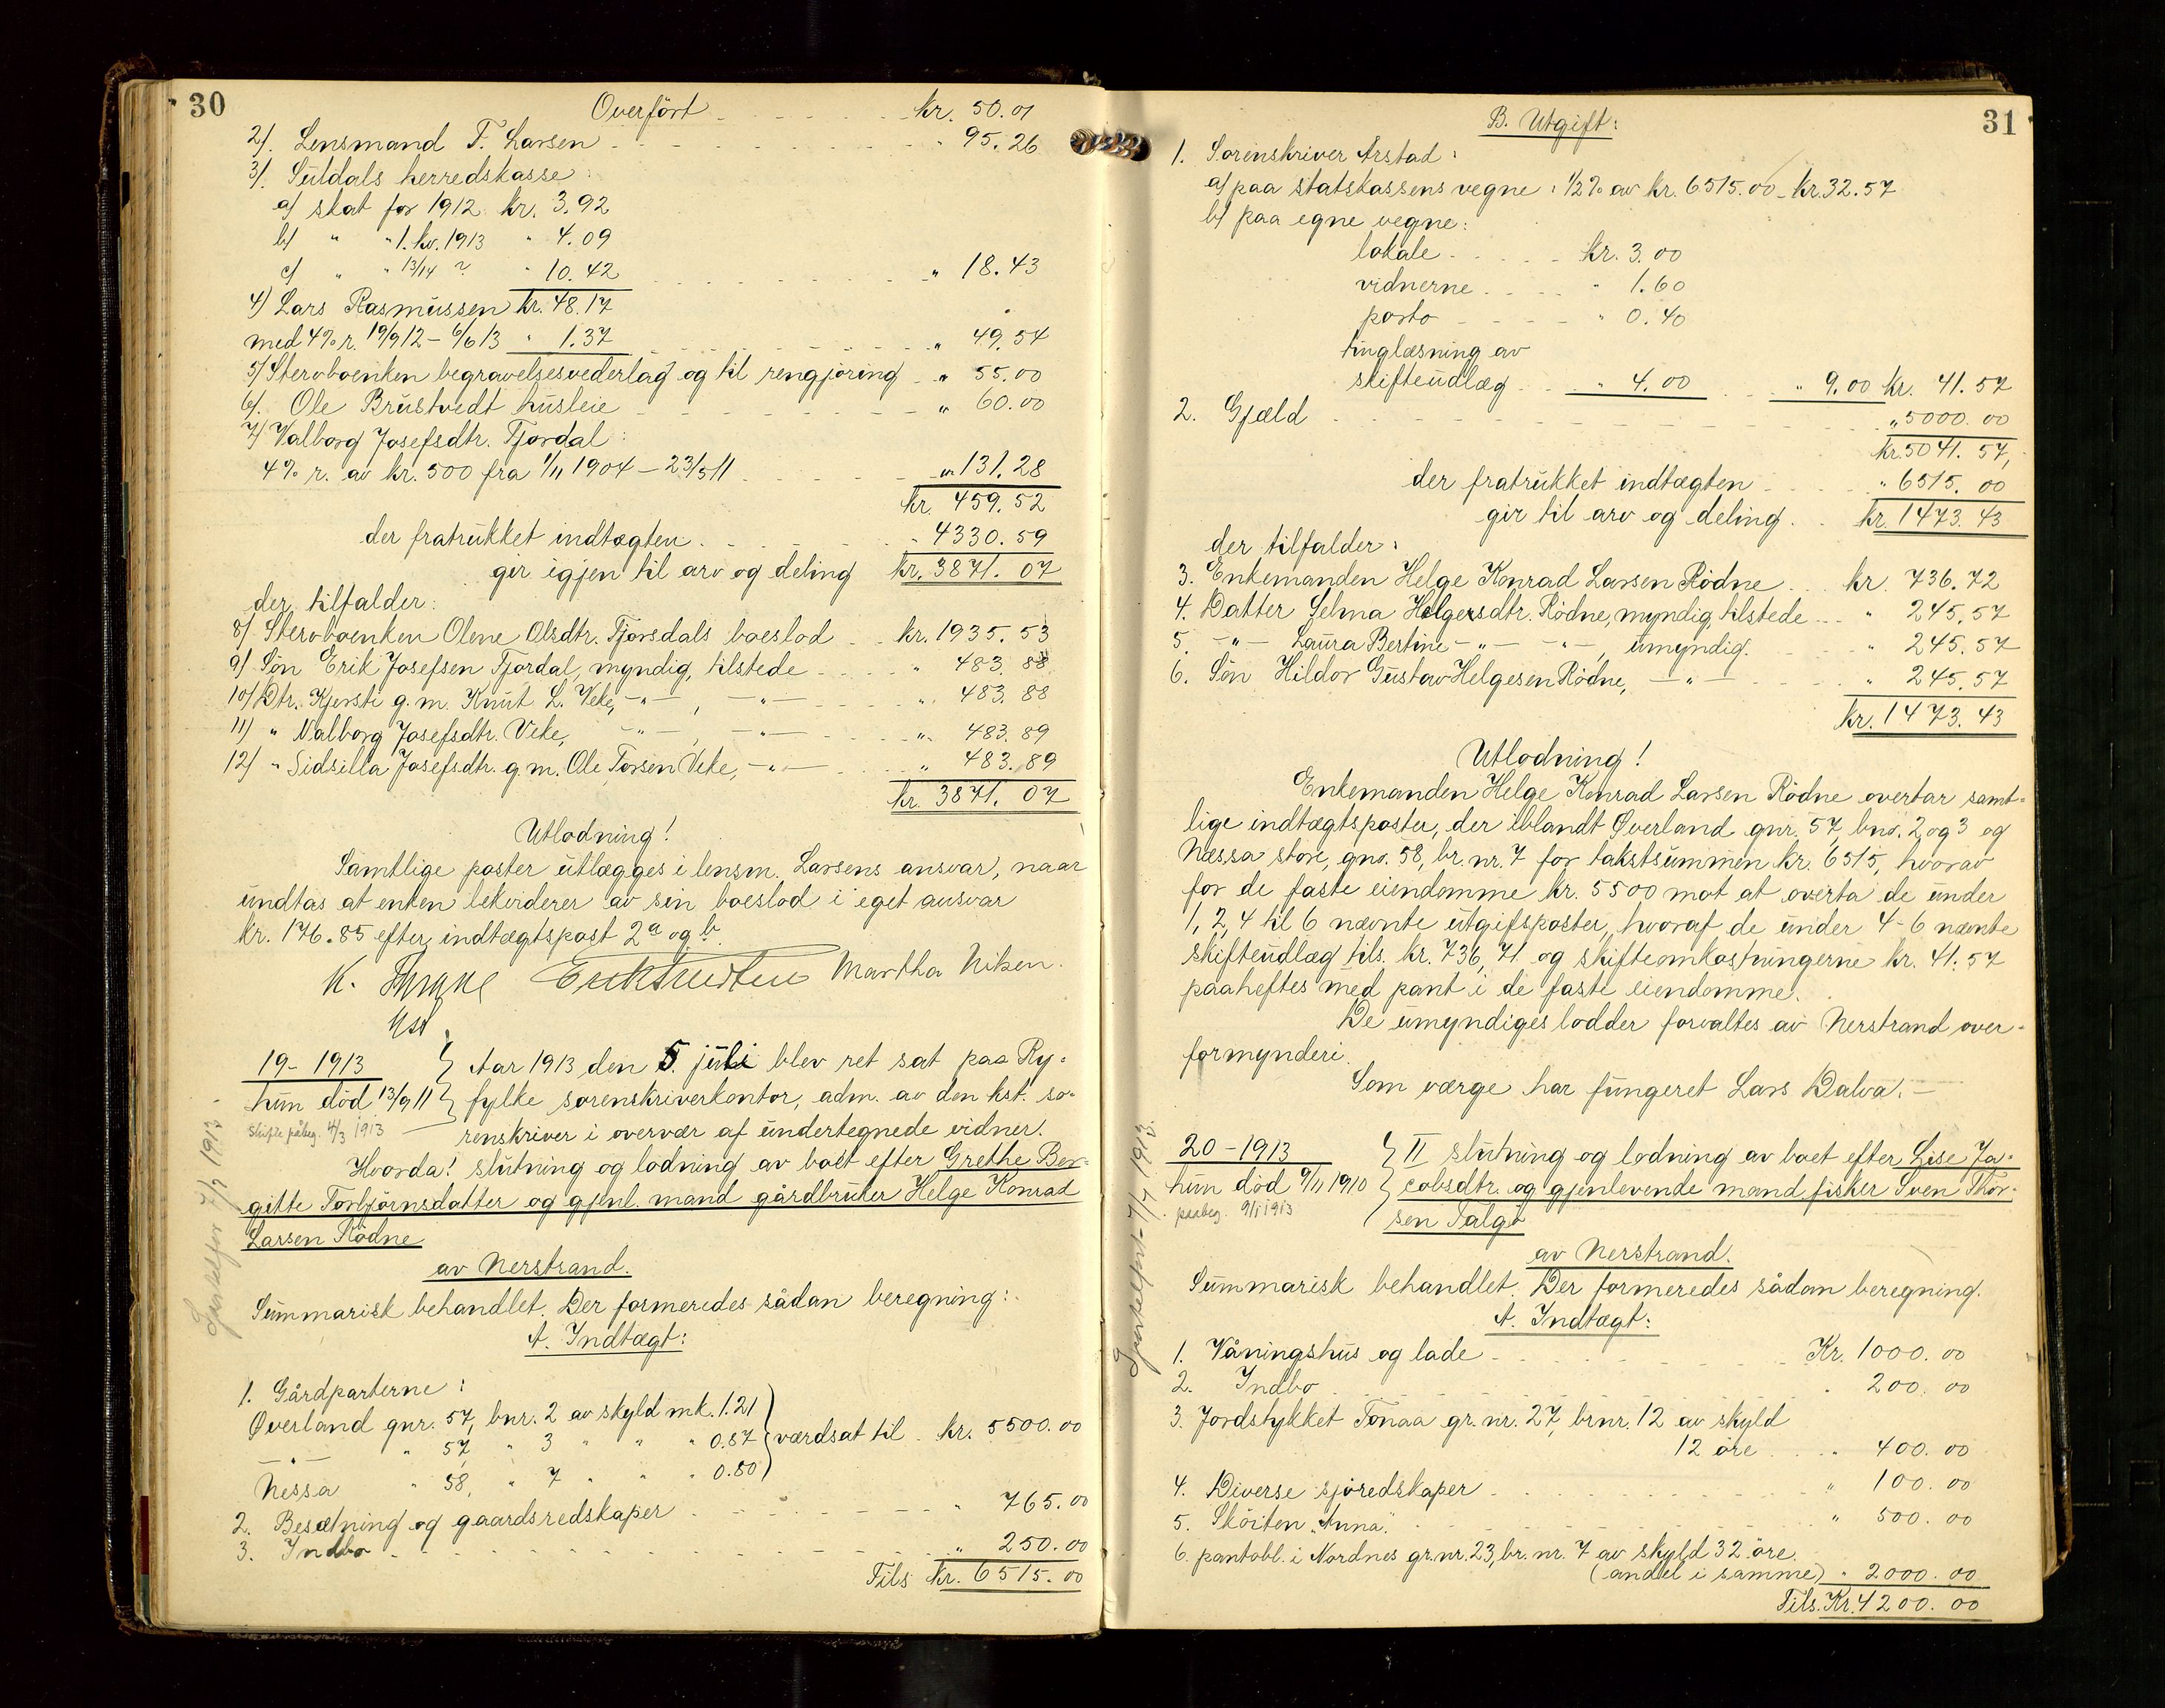 30
Overført kr. 50.01
2). Lensmand T. Larsen " 95.26
3). Suldals herredskasse:
a) skat for 1912 kr. 3.92
b) " " 1. kv. 1913 " 4.09
c) " " 13/14 ? " 10.42 " 18.43
4) Lars Rasmussen kr. 48.17
med 4% r. 19/9 12 – 6/6 13 " 1.37 " 49.54
5) Stervboenken begravelsesvederlag og til rengjøring " 55.00
6). Ole Brustvedt husleie " 60.00
7) Valborg Josefsdtr. Fjordal:
4% r. av kr. 500 fra 1/11 1904 – 23/5 11 " 131.28
kr. 459.52
der fratrukket indtægten " 4330.59
gir igjen til arv og deling kr. 3871.07
der tilfalder:
8) Stervboenken Olene Olsdtr. Fjordals boeslod kr. 1935.53
9) Søn Erik Josefsen Fjordal, myndig, tilstede " 483.88
10) Dtr. Kjersti g.m. Knut L. Veke, —"—, —"— " 483.88
11) " Valborg Josefsdtr. Veke, —"—, —"— " 483.89
12) " Sidsilla Josefsdtr. g.m. Ole Torsen Veke, —"— " 483.89
kr. 3871.07
Utlodning!
Samtlige poster utlægges i lensm. Larsens ansvar, naar
undtas at enken lekviderer av sin boeslod i eget ansvar
kr. 176.85 efter indtægtspost 2a og b.
K. Martha Nilsen.
kst.
19 – 1913
hun død 13/9 11
Skifte påbeg. 4/3 1913
Aar 1913 den 5. juli blev ret sat paa Ry-
fylke sorenskriverkontor, adm. av den kst. so-
renskriver i overvær af undertegnede vidner.
Hvorda! slutning og lodning av boet efter Grethe Ber-
gitte Torbjørnsdatter og gjenl. mand gårdbruker Helge Konrad
Larsen Rødne
av Nerstrand.
Summarisk behandlet. Der formeredes sådan beregning:
A. Indtægt:
1. Gårdparterne:
Øverland gnr. 57, bnr. 2 av skyld mk. 1.21
—"— " 57, " 3 " " " 0.87 værdsat til kr. 5500.00
Nessa " 58, " 7 " " " 0.80
2. Besætning og gaardsredskaper " 765.00
3. Indbo " 250.00
Tils kr. 6515.00
7/7 1913
31
B. Utgift:
1. Sorenskriver Arstad:
a) paa statskassens vegne: 1/2% av kr. 6515.00 – kr. 32.57
b) paa egne vegne:
lokale kr. 3.00
vidnerne " 1.60
porto " 0.40
tinglæsning av
skifteudlæg " 4.00 " 9.00 kr. 41.57
2. Gjæld " 5000.00
kr. 5041.57,
der fratrukket indtægten " 6515.00
gir til arv og deling kr. 1473.43
der tilfalder:
3. Enkemanden Helge Konrad Larsen Rødne kr. 736.72
4. Datter Selma Helgesdtr. Rødne, myndig, tilstede " 245.57
5. —"— Laura Bertine —"— —"—, umyndig. " 245.57
6. Søn Hildor Gustav Helgesen Rødne, —"— " 245.57
kr. 1473.43
Utlodning!
Enkemanden Helge Konrad Larsen Rødne overtar samt-
lige indtægtsposter, der iblandt Øverland gnr. 57, bno. 2 og 3 og
Næssa store, gno. 58, br. nr. 7 for takstsummen kr. 6515, hvorav
for de faste eiendomme kr. 5500 mot at overta de under
1, 2, 4 til 6 nævnte utgifsposter, hvoraf de under 4–6 nævnte
skifteudlæg tils. kr. 736,71 og skifteomkostningerne kr. 41.57
paaheftes med pant i de faste eiendomme.
De umyndiges lodder forvaltes av Nerstrand over-
formynderi.
Som værge har fungeret Lars Dalva. –
20 – 1913
hun død 9/11 1910
paabeg. 9/1 1913
II slutning og lodning av boet efter Lise Ja-
cobsdtr. og gjenlevende mand fisker Sven Thor-
sen Talgø
av Nerstrand.
Summarisk behandlet. Der formeredes sådan beregning.
A. Indtægt:
1. Våningshus og lade Kr. 1000.00
2. Indbo " 200.00
3. Jordstykket Tonaa gr. nr. 27, brnr. 12 av skyld
12 øre " 400.00
4. Diverse sjøredskaper " 100.00
5. Skøiten "Anna". " 500.00
6. pantobl. i Nordnes gr. nr. 23, br. nr. 7 av skyld 32 øre.
(andel i samme) " 2000.00
Tils. Kr. 4200.00
7/7 1913.